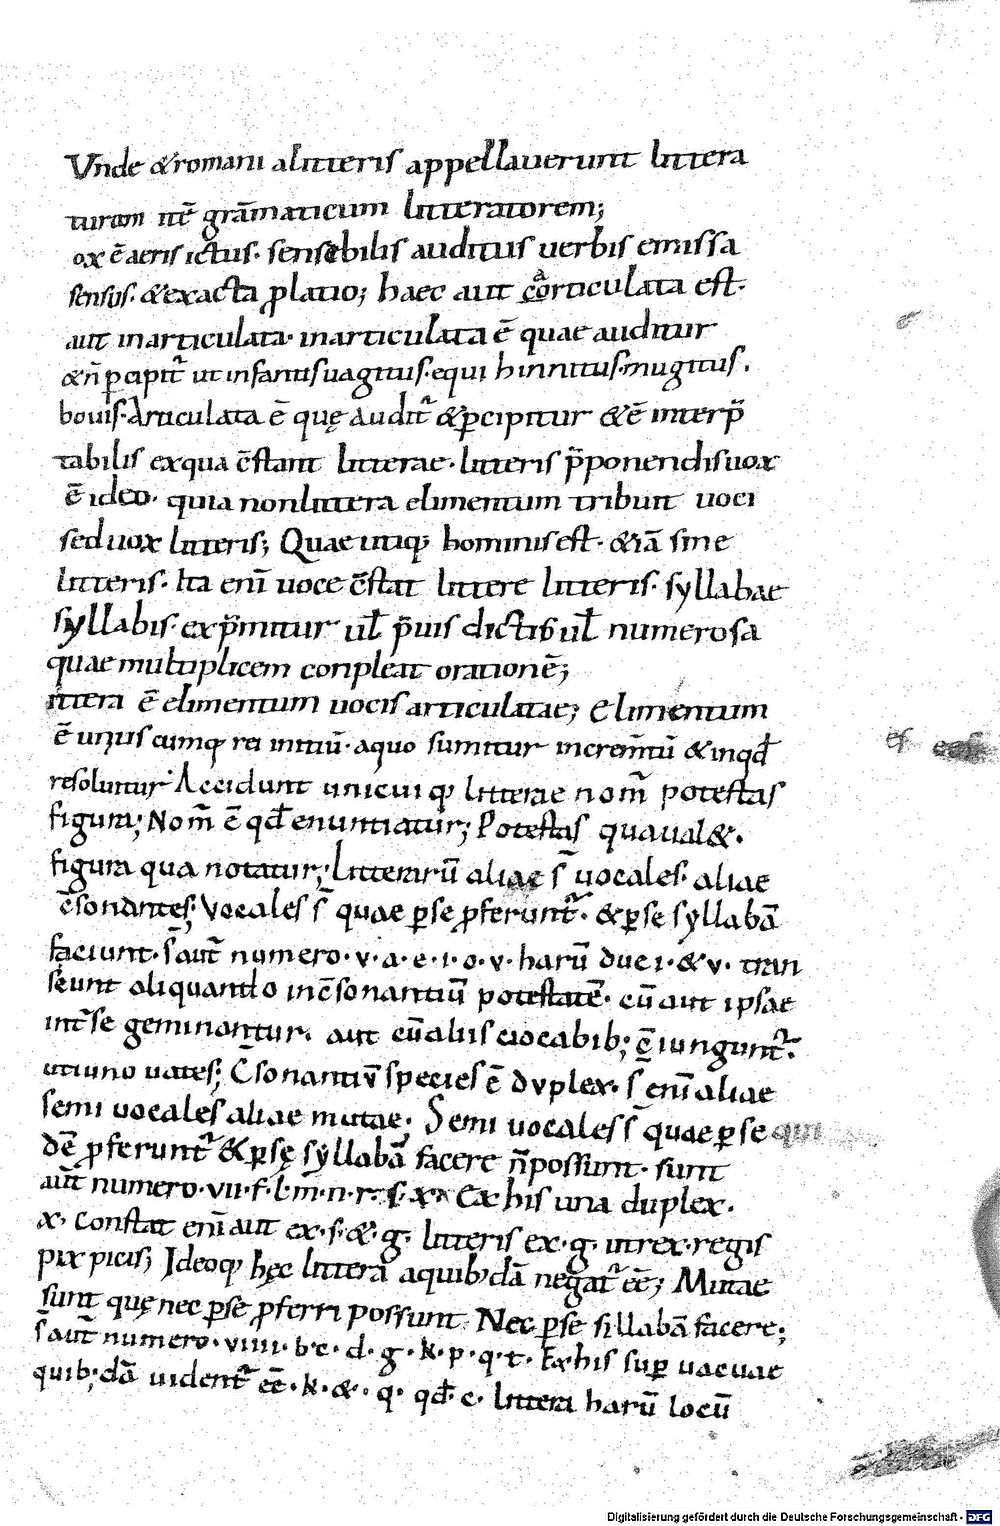 Vnde & romani a litteris appellauerunt littera
turam itē grāmaticum litteratorem;
ox ē aeris ictus· sensebilis auditus uerbis emissa
sensus· & exacta ꝓlatio; haec aut articulata est·
aut inarticulata· inarticulata ē quae auditur
& n̄ ꝑcipit᷑ ut infantis uagitus· equi hinnitus· mugitus·
bouis· Articulata ē quę audit᷑ & ꝑcipitur & ē interp̄
tabilis ex qua c̄stant litterae· litteris p̄ponendis uox
ē ideo· quia non littera elimentum tribuit uoci
sed uox litteris; Quae utiq; hominis est· & iā sine
litteris· Ita enī uoce c̄stat littere litteris· syllabae
syllabis· exp̄mitur ul̄ p̄uis dictis ul̄ numerosa
quae multiplicem conpleat orationē;
ittera ē elimentum uocis articulatae; Elimentum
ē unus cuiusq; rei initiū· a quo sumitur increm̄tū & in qd̄
resoluitur· Accidunt unicuiq; litterae nom̄ potestas
figura; Nom̄ ē qd̄ enuntiatur; Potestas qua ual&·
figura qua notatur; Litterarū aliae s̄ uocales· aliae
c̄sonantes; Vocales s̄ quae ꝑ se ꝓferunt᷑· & ꝑ se syllabā
faciunt· s̄ aut̄ numero· v· a· e· i· o· v· harū due i· & v· tran
seunt aliquando in c̄sonantiū potestatē· cū aut ipsae
int̄ se geminantur· aut cū aliis uocabib; c̄iungunt᷑·
uti uno uates; C̄sonantiv̄ species ē dvplex· s̄ enī aliae
semi uocales aliae mutae· Semi uocales s̄ quae ꝑ se qui
dē ꝓferunt᷑ & ꝑ sę syllabā facere n̄ possunt· sunt
aut̄ numero· vii· f· l· m· n· r· s· x· Ex his una duplex·
x· constat enī aut ex· s· &· g· litteris ex· g· ut rex· regis
pix picis; Ideoq; hęc litterā a quib;dā negat᷑ ēē; Mutae
sunt quę nec ꝑ se ꝓferri possunt Nec ꝑ se sillabā facere;
s̄ aut̄ numero· viiii· b· c· d· g· k· p· q· t· Ex his suꝑ uacuae
quib;dā uident᷑ ēē· k· &· q· qd̄ c· littera harū locū
Digitalisierung gefördert durch die Deutsche Forschungsgemeinschaft - DFG